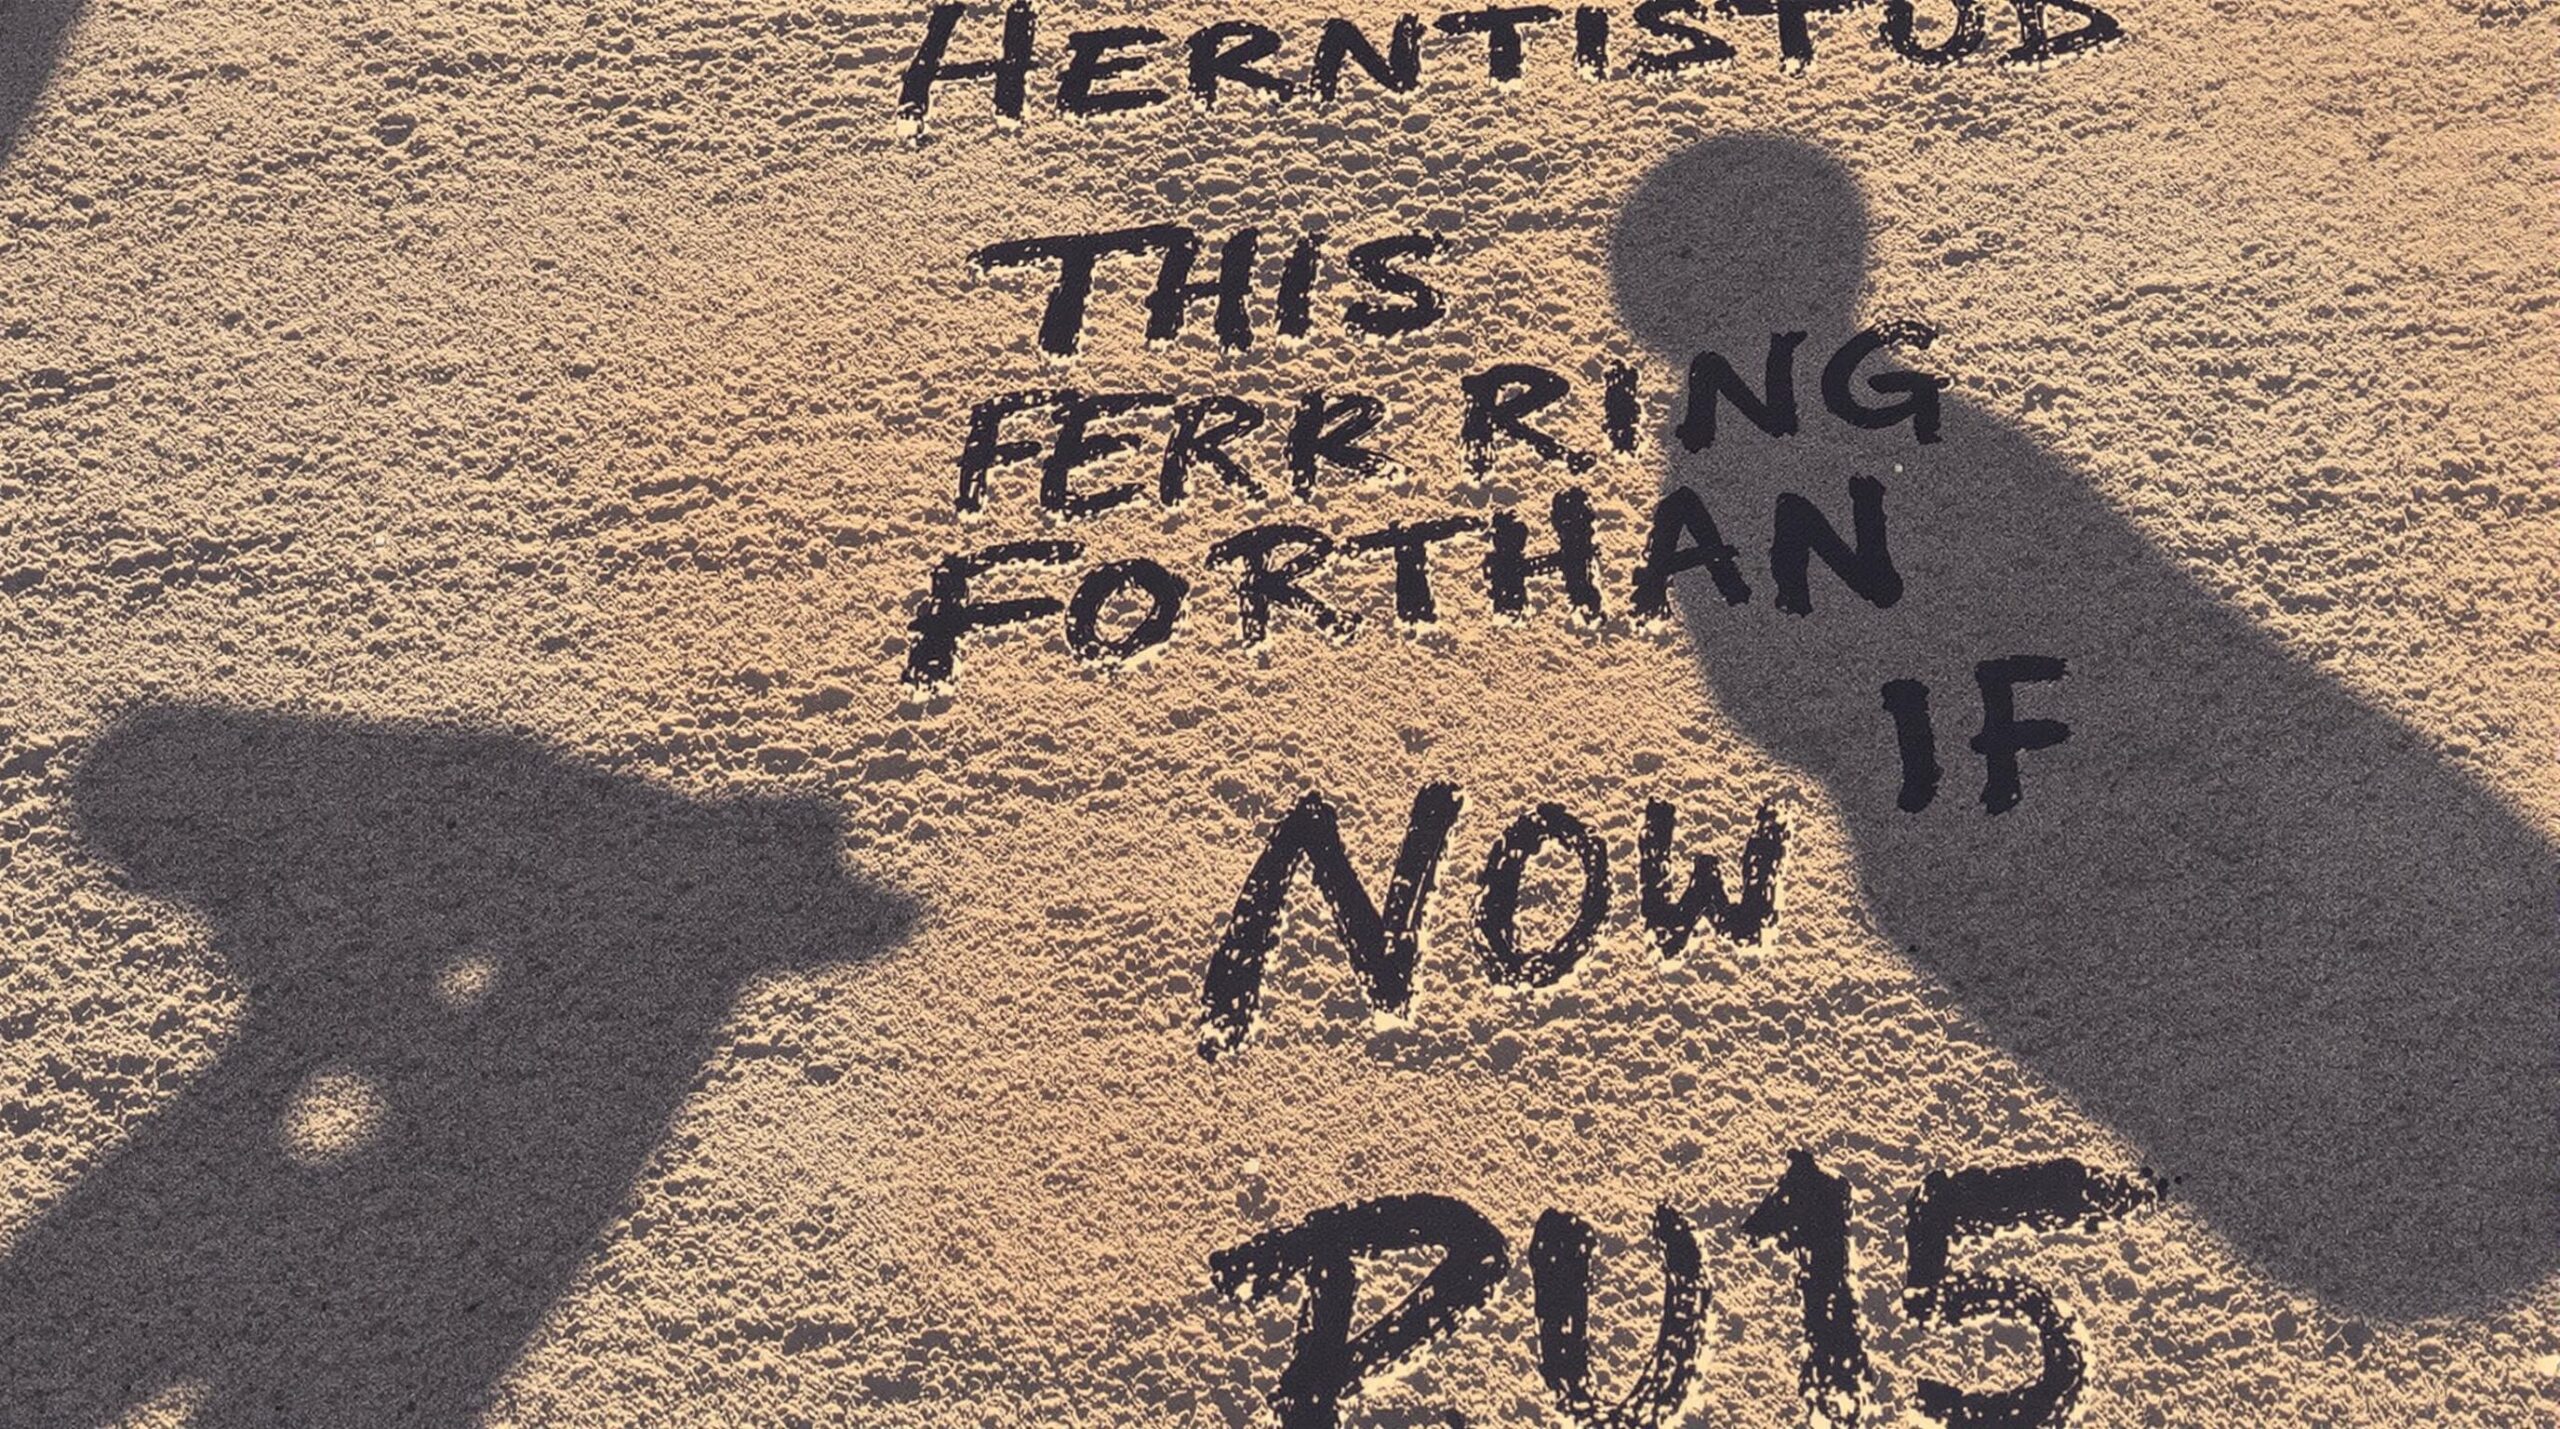 HERNTISTUD
THIS
FERR RING
FORTHAN
IF
NOW
PU15